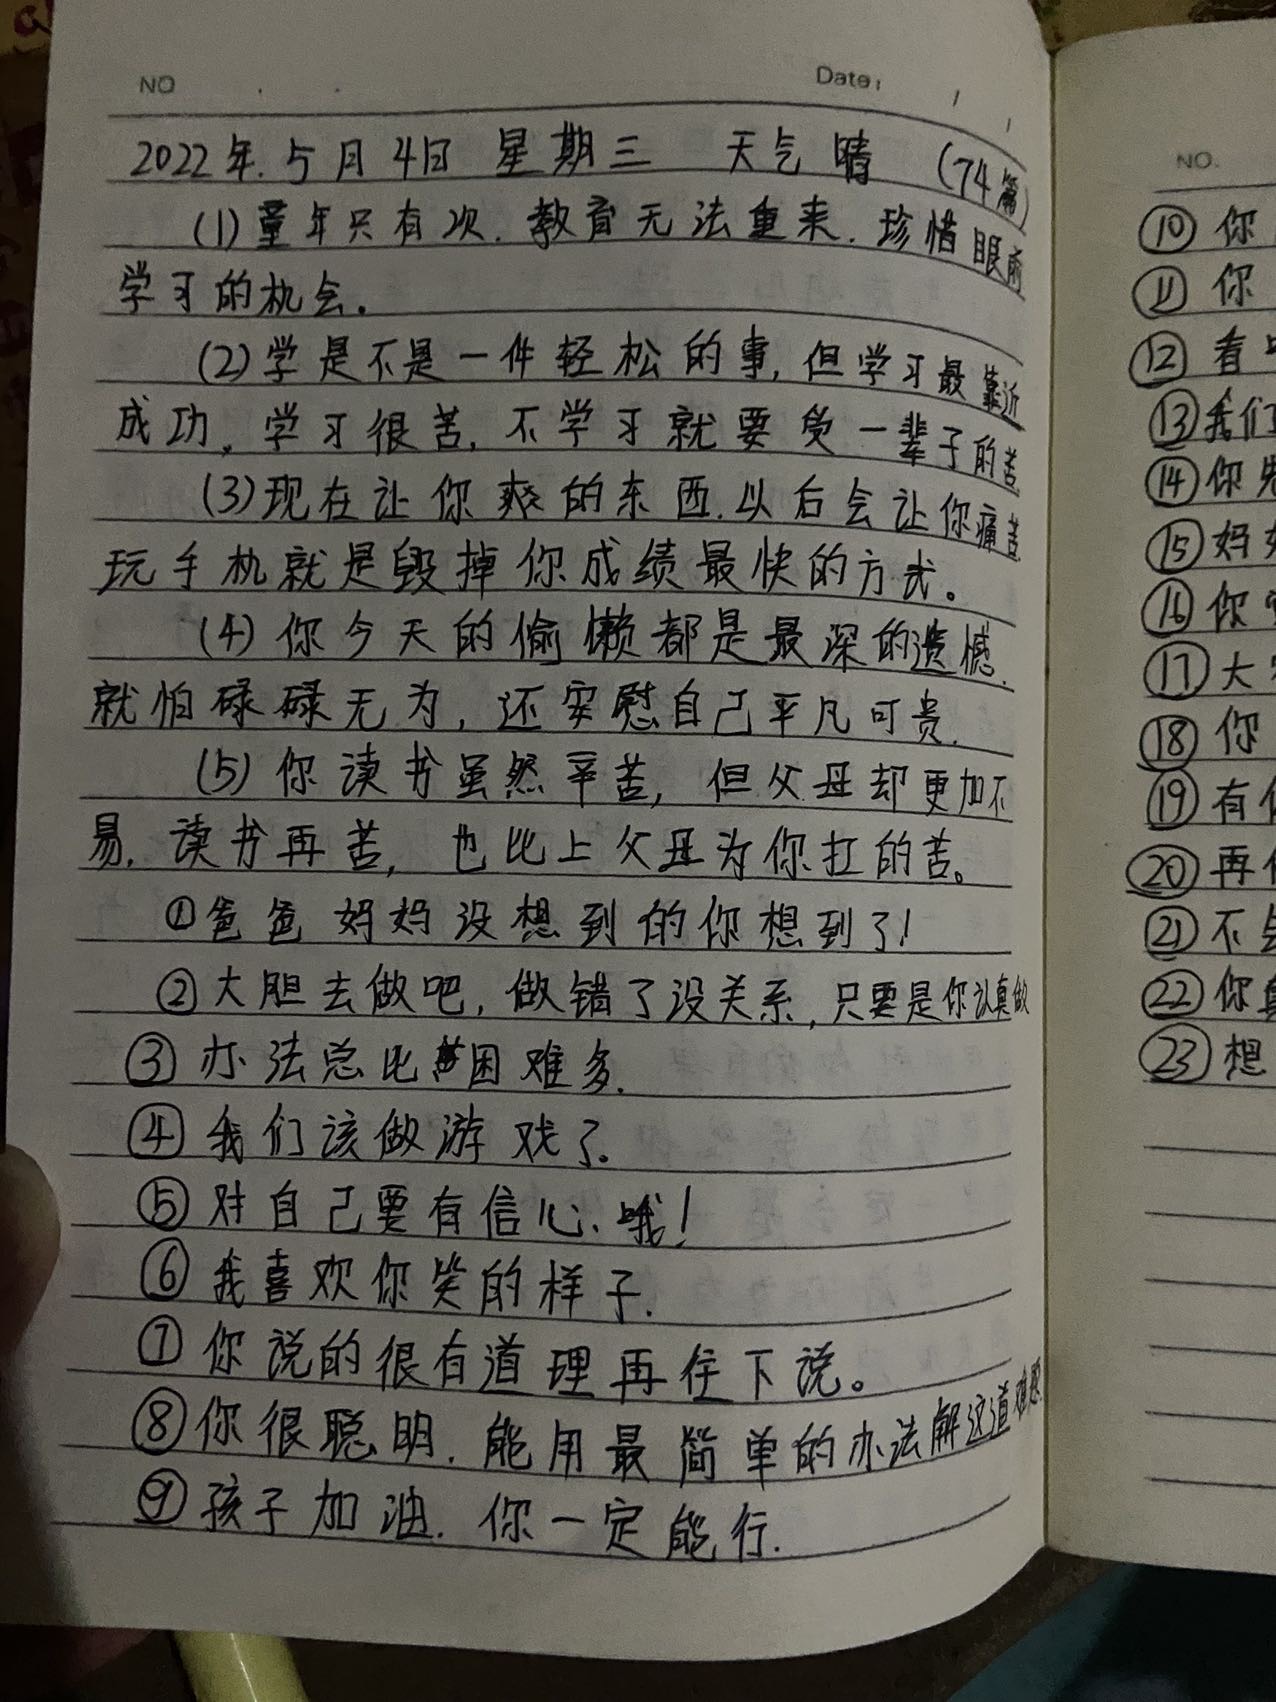 NO
Date:
2022年.5月4日 星期三 天气晴 (74篇)
(1)童年只有次.教育无法重来.珍惜眼前
学习的机会.
(2)学是不是一件轻松的事,但学习最靠近
成功。学习很苦,不学习就要受一辈子的苦
(3)现在让你爽的东西.以后会让你痛苦
玩手机就是毁掉你成绩最快的方式。
(4)你今天的偷懒都是最深的遗憾.
就怕碌碌无为,还安慰自己平凡可贵.
(5)你读书虽然辛苦,但父母却更加不
易.读书再苦,也比上父母为你扛的苦。
①爸爸妈妈没想到的你想到了!
②大胆去做吧,做错了没关系,只要是你认真做
③办法总比困难多.
④我们该做游戏了.
⑤对自己要有信心、哦!
⑥我喜欢你笑的样子.
⑦你说的很有道理再住下说。
⑧你很聪明.能用最简单的办法解这道难题.
⑨孩子加油.你一定能行.
NO.
⑩你
⑪你
⑫看
⑬我们
⑭你
⑮妈
⑯你
⑰大
⑱你
⑲有
⑳再
㉑不
㉒你
㉓想